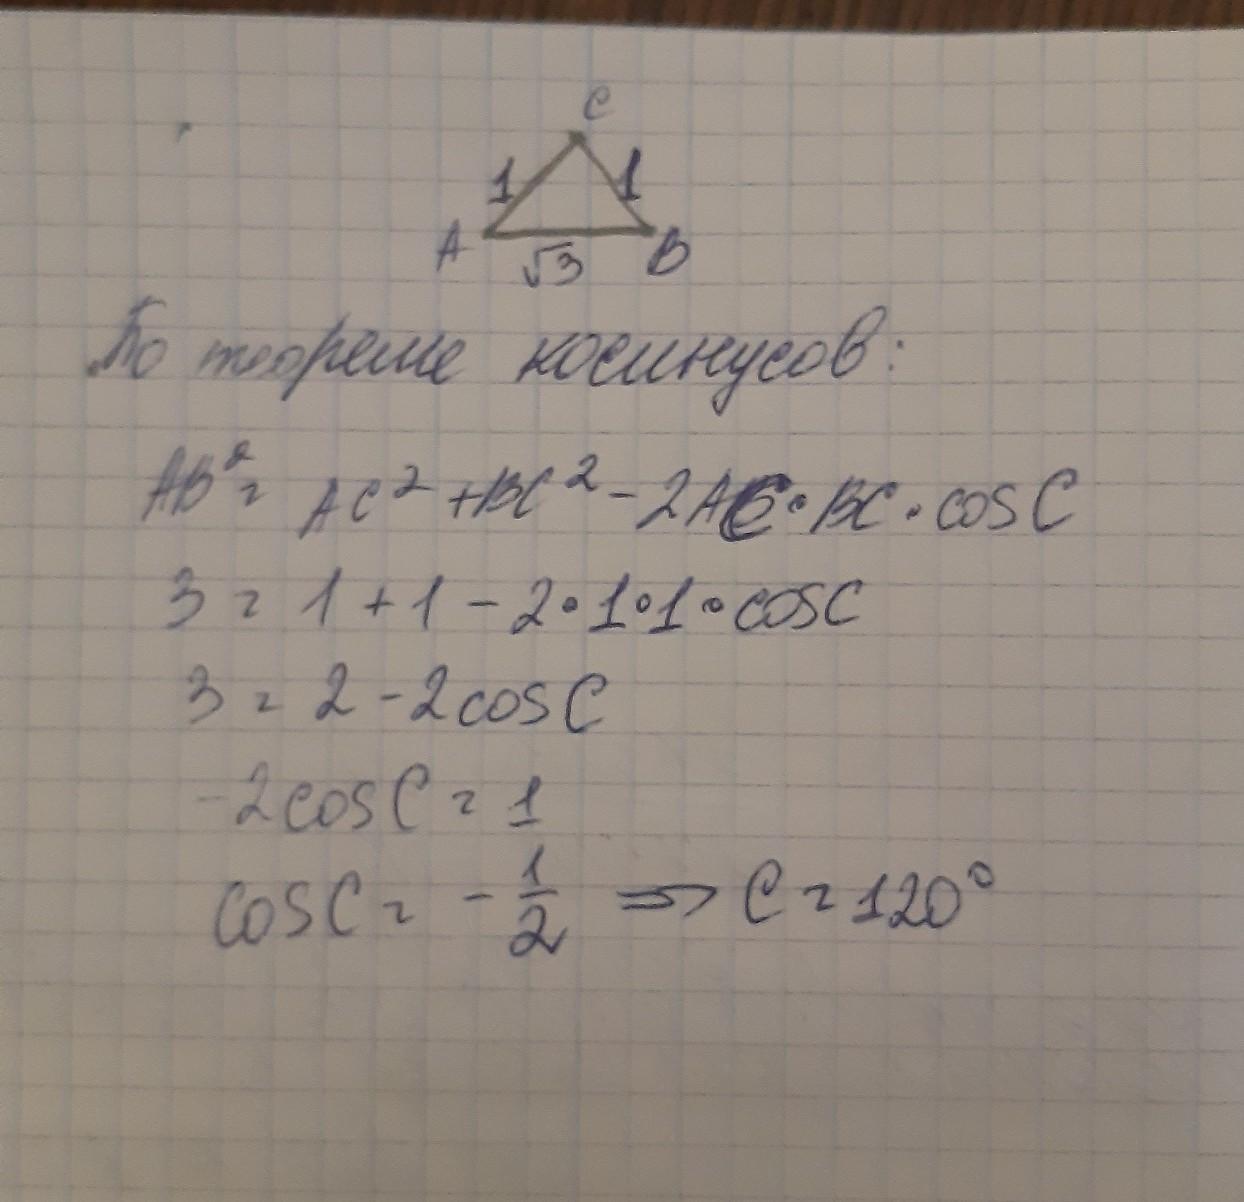 C
1 1
A √3 B
По теореме косинусов:
AB² = AC² + BC² - 2AC · BC · cos C
3 = 1 + 1 - 2 · 1 · 1 · cos C
3 = 2 - 2 cos C
-2 cos C = 1
cos C = - 1/2 => C = 120°